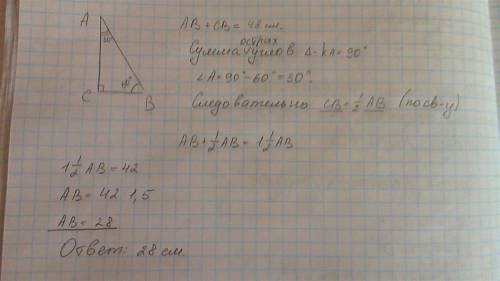 A
30°
60°
C
B
AB + CB = 42 см.
острых
Сумма углов в Δ-kA = 90°
∠A = 90° - 60° = 30°.
Следовательно CB = 1/2 AB (по св-у)
AB + 1/2 AB = 1 1/2 AB
1 1/2 AB = 42
AB = 42 1,5
AB = 28
Ответ: 28 см.